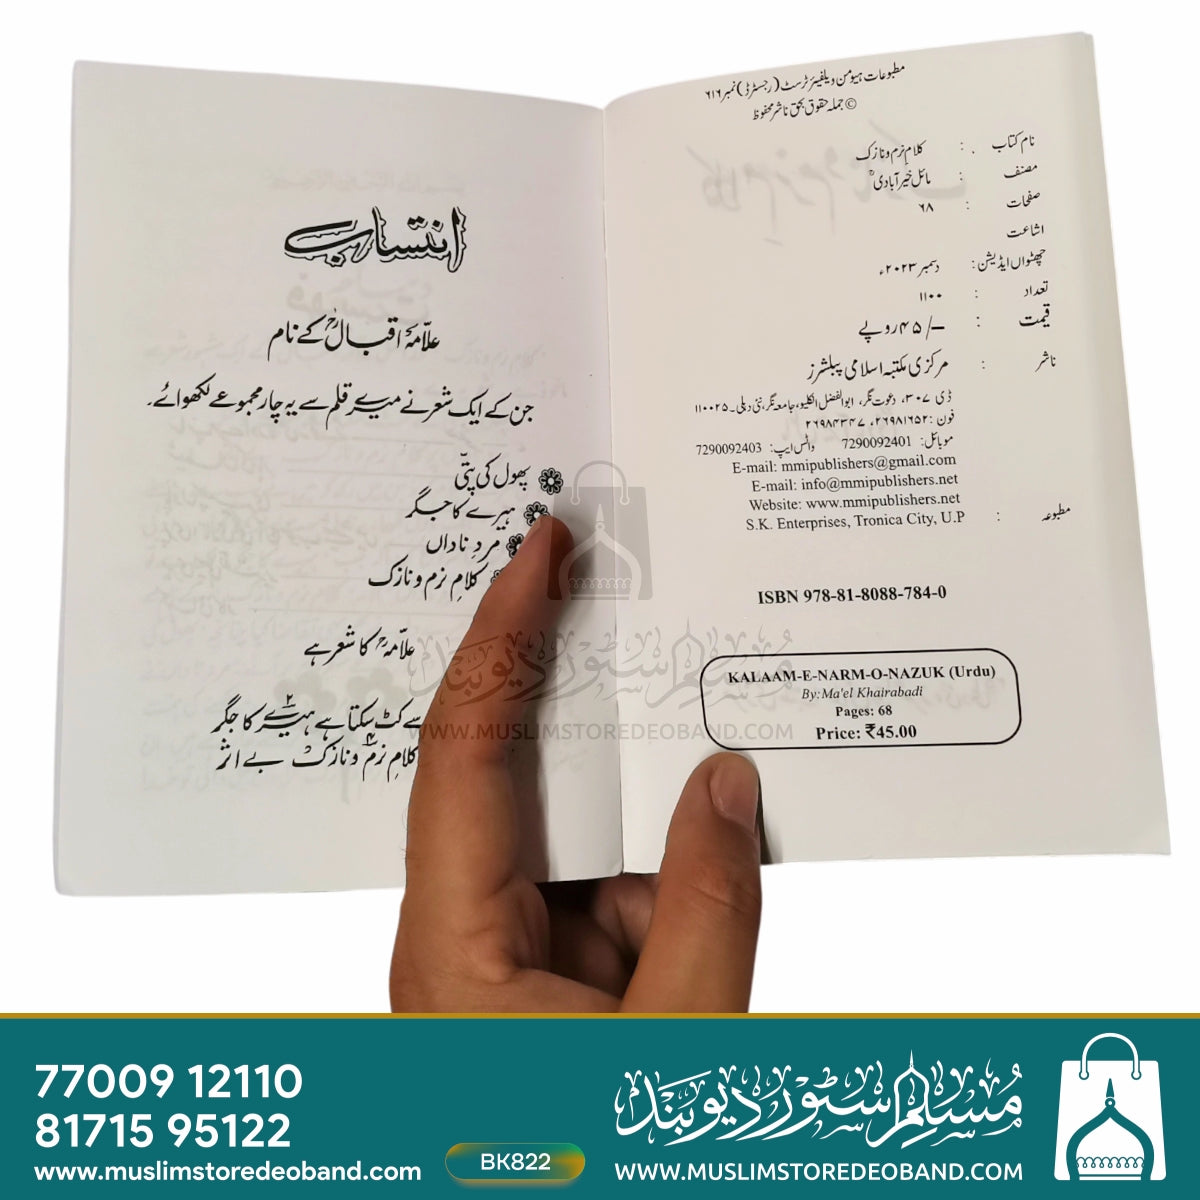 مطبوعات ہیومن ویلفیئر ٹرسٹ (رجسٹرڈ) نمبر ۶۱۶
© جملہ حقوق بحق ناشر محفوظ
نام کتاب : کلام نرم و نازک
مصنف : مائل خیرآبادیؒ
صفحات : ۶۸
اشاعت
چھٹواں ایڈیشن: دسمبر ۲۰۲۳ء
تعداد : ۱۱۰۰
قیمت : ۴۵/- روپے
ناشر : مرکزی مکتبہ اسلامی پبلشرز
ڈی ۳۰۷، دعوت نگر، ابوالفضل انکلیو، جامعہ نگر، نئی دہلی۔۱۱۰۰۲۵
فون: ۲۶۹۸۱۶۵۲، ۲۶۹۸۴۳۴۷
موبائل: 7290092401 واٹس ایپ: 7290092403
E-mail: mmipublishers@gmail.com
E-mail: info@mmipublishers.net
Website: www.mmipublishers.net
مطبوعہ : S.K. Enterprises, Tronica City, U.P
ISBN 978-81-8088-784-0
KALAAM-E-NARM-O-NAZUK (Urdu)
By:Ma'el Khairabadi
Pages: 68
Price: ₹45.00
انتساب
علامہ اقبالؒ کے نام
جن کے ایک شعر نے میرے قلم سے یہ چار مجموعے لکھوائے۔
پھول کی پتّی
ہیرے کا جگر
مردِ ناداں
کلامِ نرم و نازک
علامہؒ کا شعر ہے
سے کٹ سکتا ہے ہیرے۲ کا جگر
کلامِ نرم۴ و نازک بے اثر
مسلم سٹور دیوبند
WWW.MUSLIMSTOREDEOBAND.COM
77009 12110
81715 95122
www.muslimstoredeoband.com
BK822
مسلم سٹور دیوبند
WWW.MUSLIMSTOREDEOBAND.COM